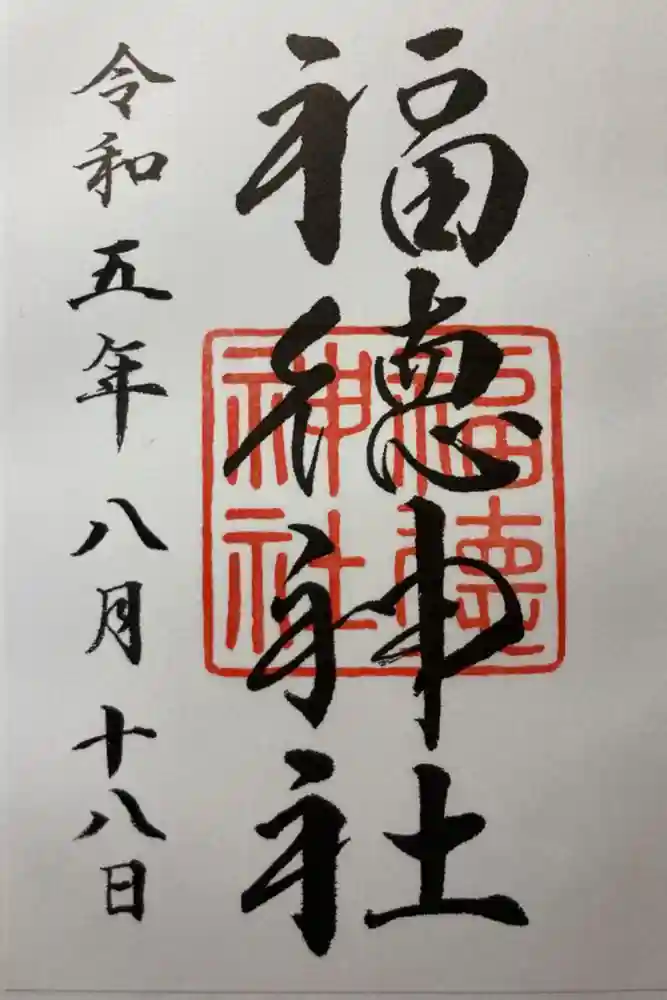 福徳神社
福徳
神社
令和五年八月十八日